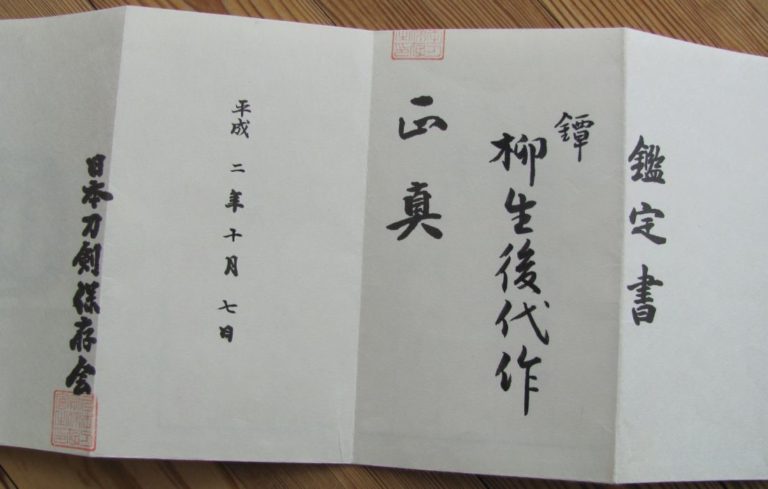 鑑定書
鐔
柳生後代作
正真
平成二年十月七日
日本刀剣保存会